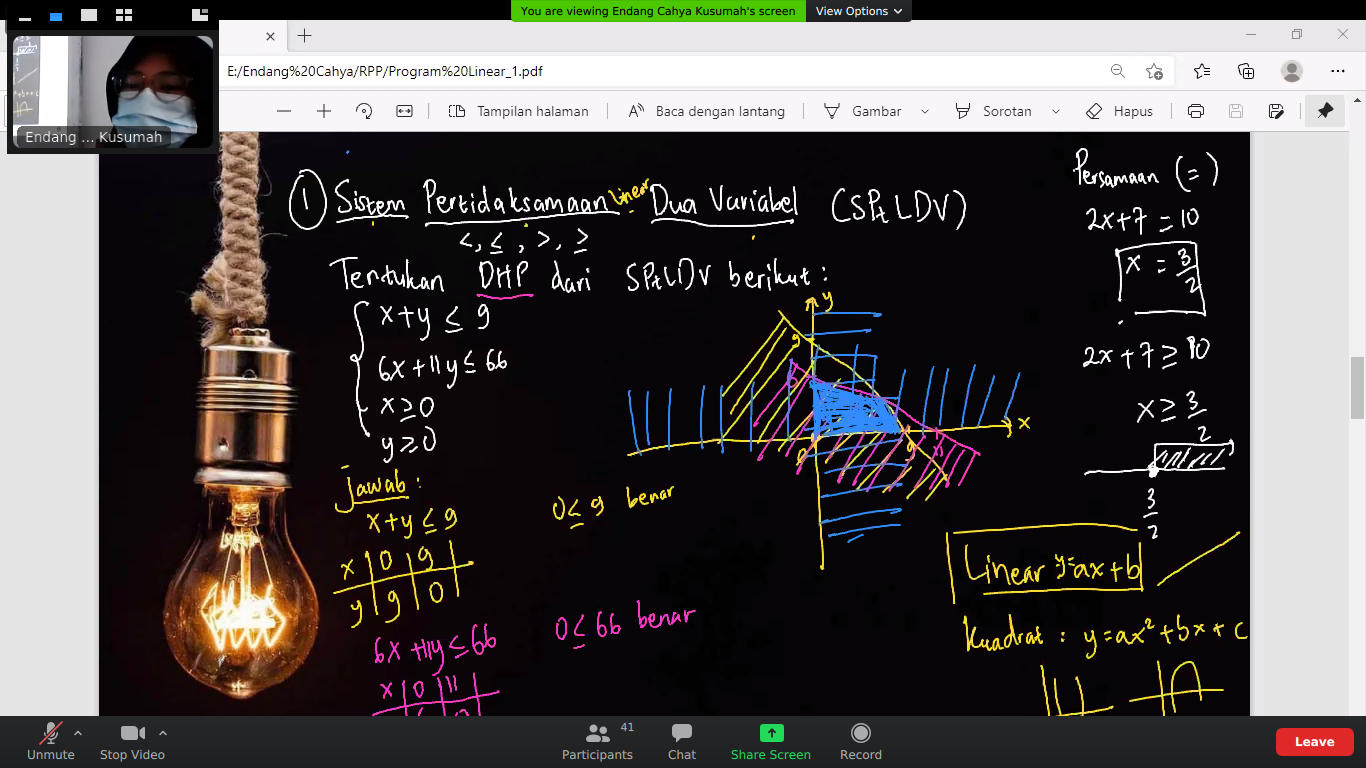 You are viewing Endang Cahya Kusumah's screen
View Options
E:/Endang%20Cahya/RPP/Program%20Linear_1.pdf
Tampilan halaman
Baca dengan lantang
Gambar
Sorotan
Hapus
Endang ... Kusumah
① Sistem Pertidaksamaan linear Dua Variabel (SPtLDV)
<, ≤, >, ≥
Tentukan DHP dari SPtLDV berikut :
x+y ≤ 9
6x+11y ≤ 66
x ≥ 0
y ≥ 0
jawab :
x+y ≤ 9
0 ≤ 9 benar
x | 0 | 9
y | 9 | 0
6x+11y ≤ 66
0 ≤ 66 benar
x | 0 | 11
y
9
6
0
9
11
x
Persamaan (=)
2x+7 = 10
x = 3/2
2x+7 ≥ 10
x ≥ 3/2
3/2
Linear y=ax+b
Kuadrat : y=ax²+bx+c
Unmute
Stop Video
Participants
41
Chat
Share Screen
Record
Leave